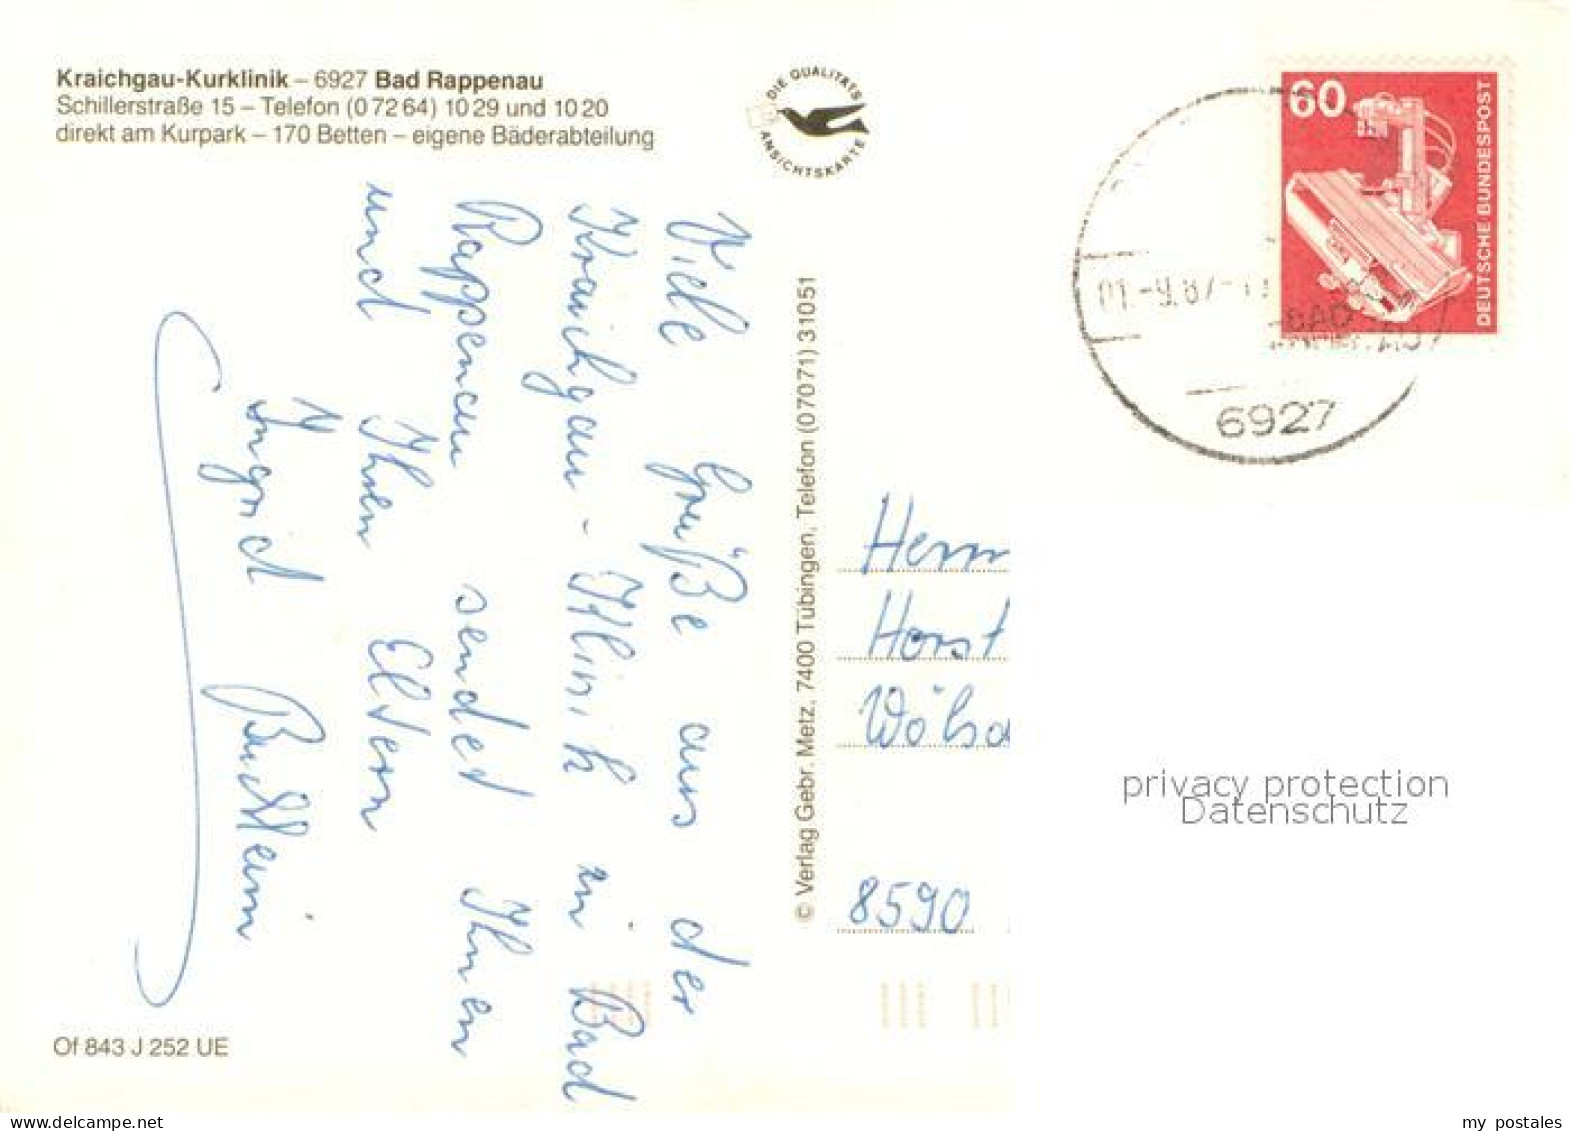 Kraichgau-Kurklinik – 6927 Bad Rappenau
Schillerstraße 15 – Telefon (0 72 64) 10 29 und 10 20
direkt am Kurpark – 170 Betten – eigene Bäderabteilung
DIE QUALITÄTS
ANSICHTSKARTE
60
DEUTSCHE BUNDESPOST
01.-9.87-
BAD
6927
Viele Grüße aus der
Kraichgau-Klinik in Bad
Rappenau sendet Ihnen
und Ihren Eltern
Ingrid
© Verlag Gebr. Metz, 7400 Tübingen, Telefon (07071) 31051
Herrn
Horst
Wölsa
8590
privacy protection
Datenschutz
Of 843 J 252 UE
my postales